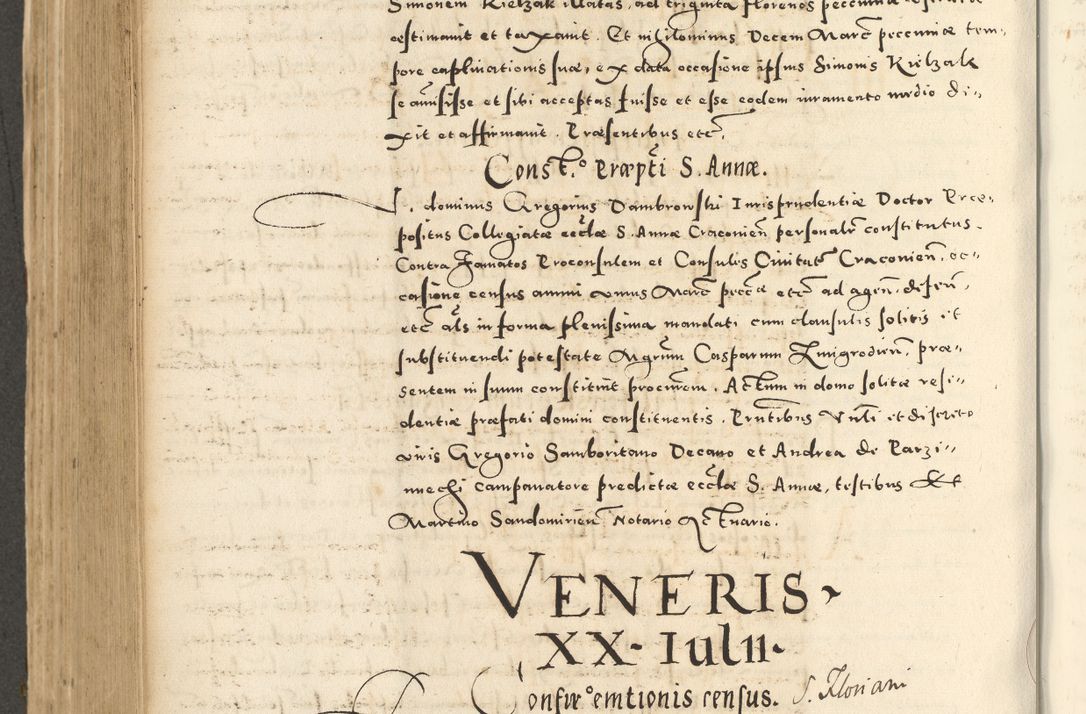 Simonem Kielzak illatas, ad triginta florenos peccuniæ
æstimauit et taxauit. Et nihilominus Decem Marc̃ peccuniæ tem-
pore captiuationis suæ, ex data occasione ipsius Simonis Kielzak
se amisisse et sibi acceptas fuisse et esse eodem iuramento medio di-
xit et affirmauit. Præsentibus etc̃.
Const.º Præpti S. Annæ.
I. dominus Gregorius Dambrowski Iurisprudentiæ Doctor Præ-
positus Collegiatæ ecclæ S. Annæ Cracouien̄ personalr̄ constitutus.
Contra Famatos Proconsulem et Consules Ciuitatis Cracouien̄. oc-
casione census annui unius Marc̃ peccæ etc̃ ad agen̄. defen̄.
etc̃ als in forma plenissima mandati cum clausulis solitis et
substituendi potestate Mgrum Casparum Zmigrodien̄. præ-
sentem in suum constituit procurem. Actum in domo solitæ resi-
dentiæ præfati domini constituentis. Pruntibus Vnli et discreto
viris Gregorio Samboritano Decano et Andrea de Parzi-
miechi campanatore prædictæ ecclæ S. Annæ, testibus Et
Martino Sandomirien̄ Notario Actuario.
VENERIS
XX. Iulii.
Confæº emtionis census. S. Floriani